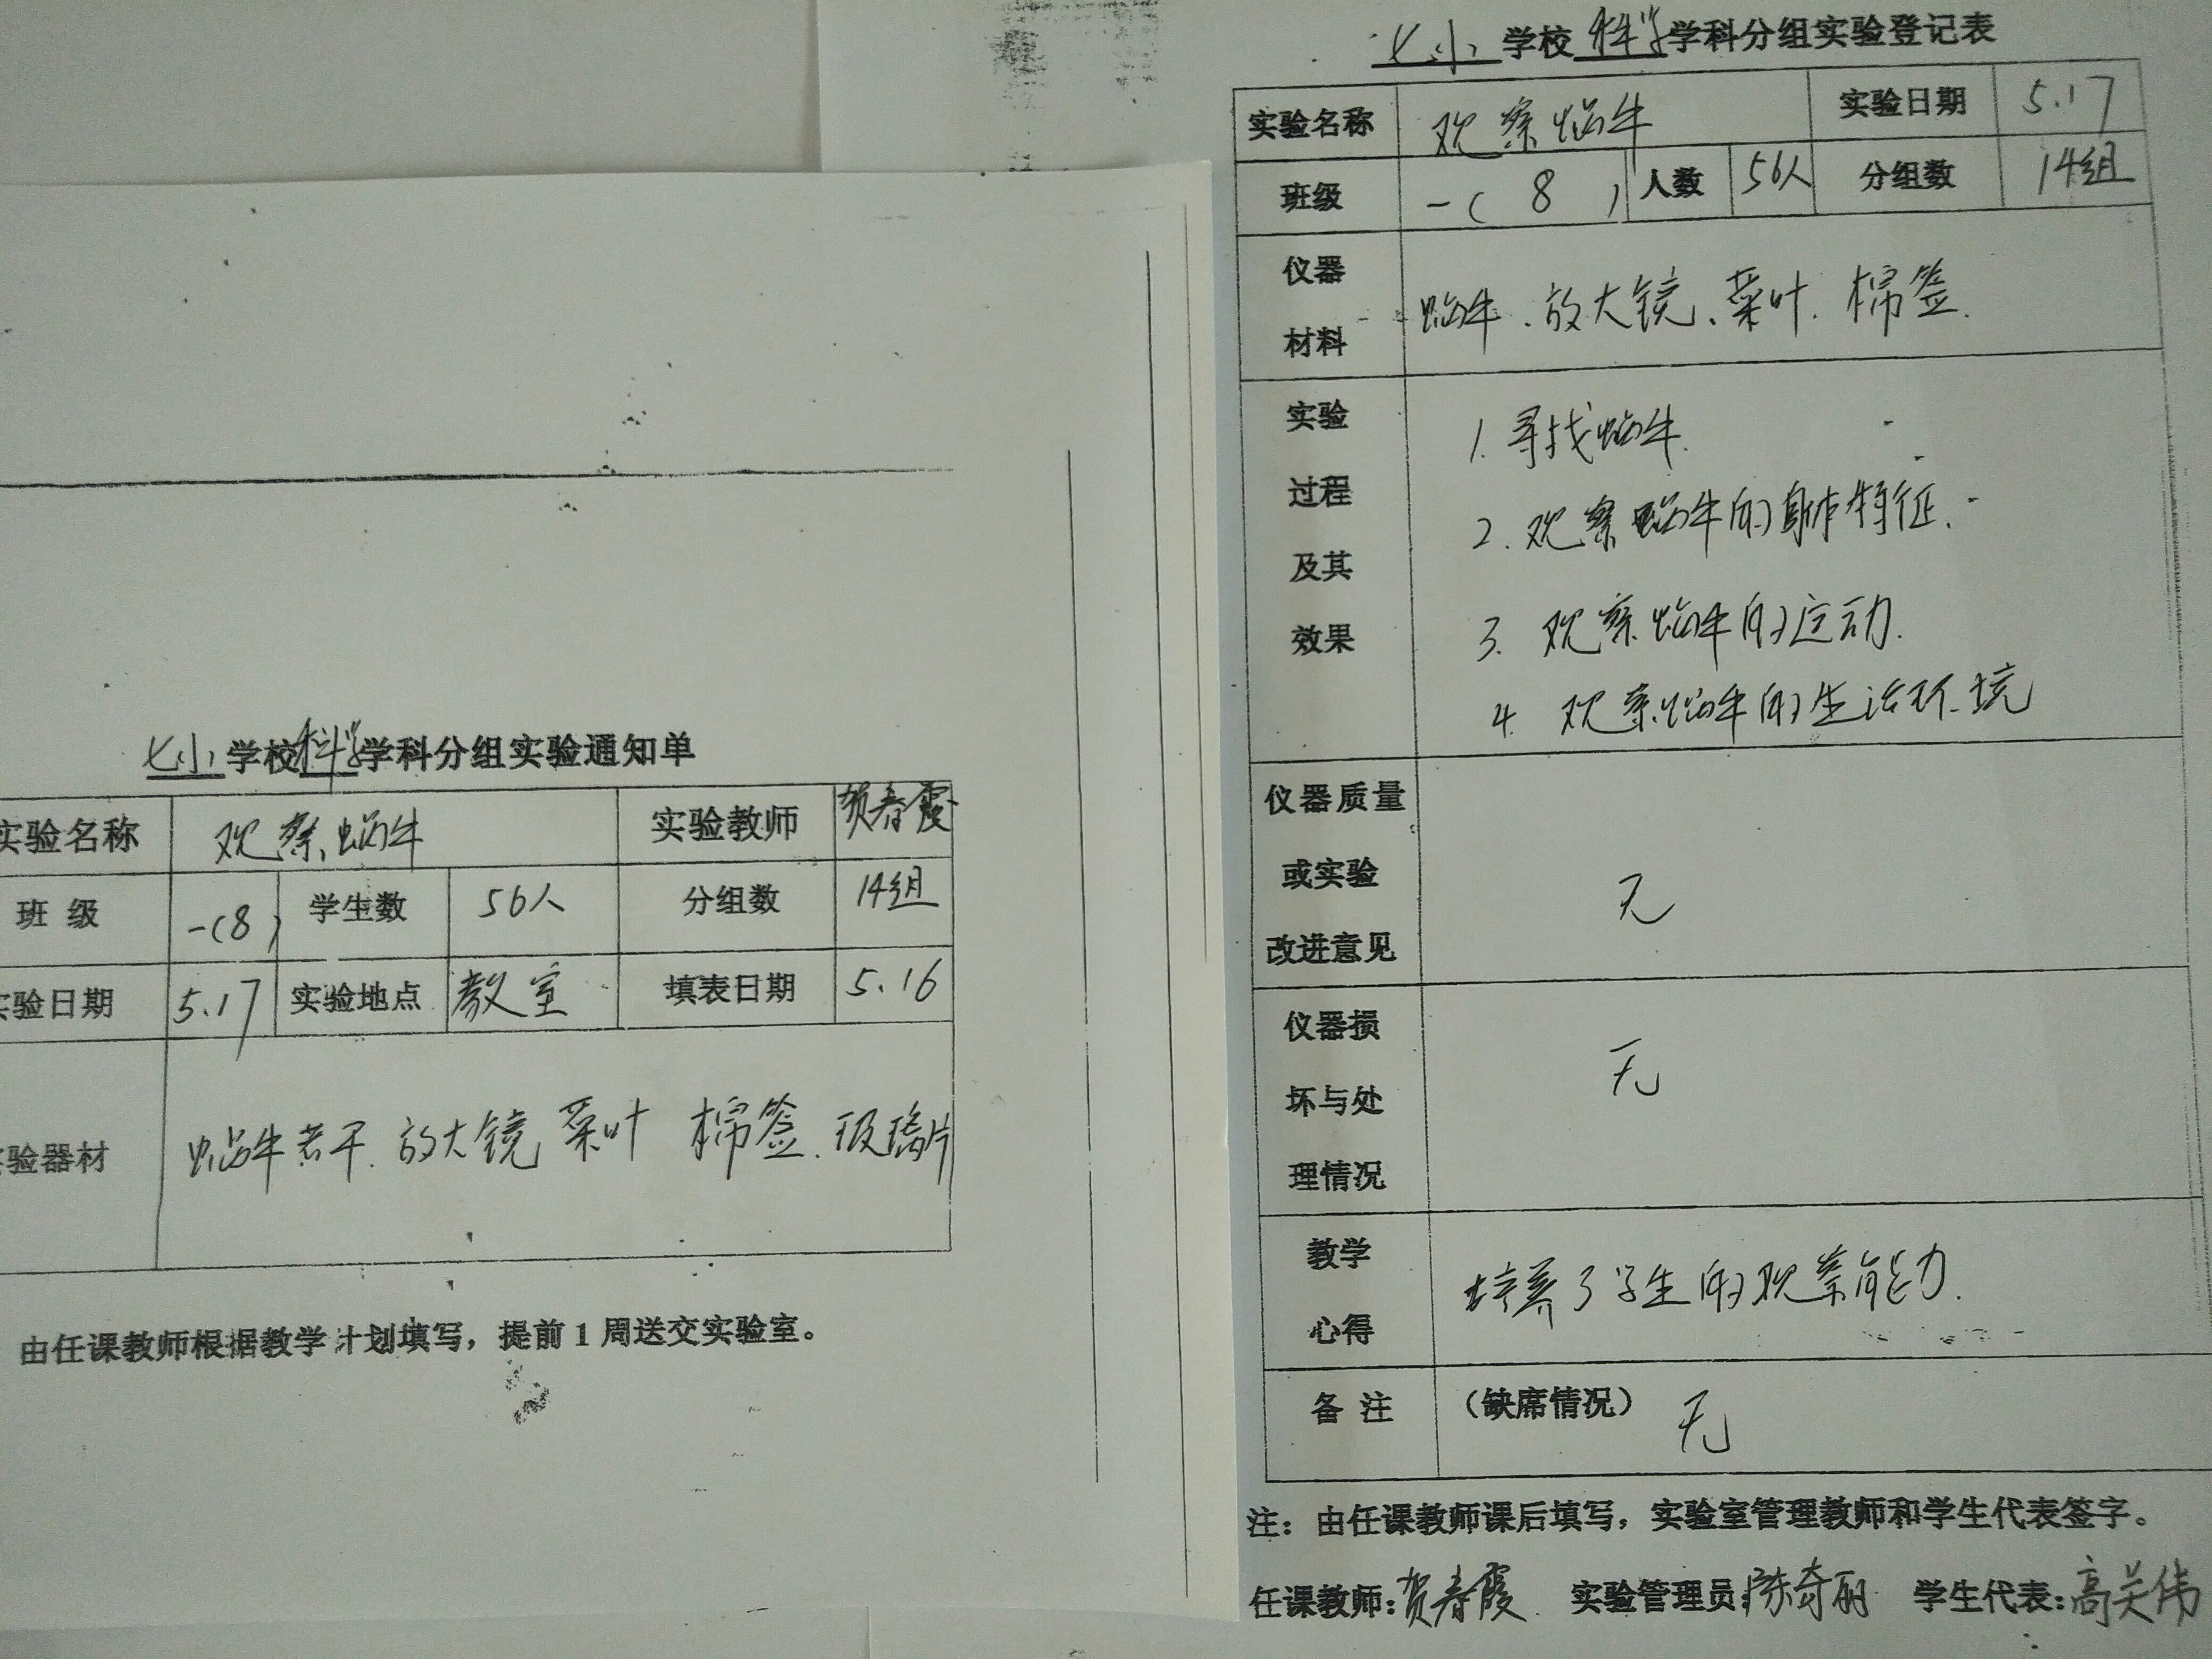 七小学校科学学科分组实验通知单
实验名称 观察蜗牛 实验教师 贺春霞
班 级 一(8) 学生数 56人 分组数 14组
实验日期 5.17 实验地点 教室 填表日期 5.16
验器材 蜗牛若干.放大镜 菜叶 棉签.玻璃片
由任课教师根据教学计划填写，提前1周送交实验室。
七小学校科学学科分组实验登记表
实验名称 观察蜗牛 实验日期 5.17
班级 一(8) 人数 56人 分组数 14组
仪器材料 蜗牛.放大镜、菜叶.棉签.
实验过程及其效果
1.寻找蜗牛.
2.观察蜗牛的身体特征.
3.观察蜗牛的运动.
4.观察蜗牛的生活环境
仪器质量或实验改进意见 无
仪器损坏与处理情况 无
教学心得 培养了学生的观察能力.
备 注 （缺席情况） 无
注：由任课教师课后填写，实验室管理教师和学生代表签字。
任课教师:贺春霞. 实验管理员:陈奇丽 学生代表:高关伟